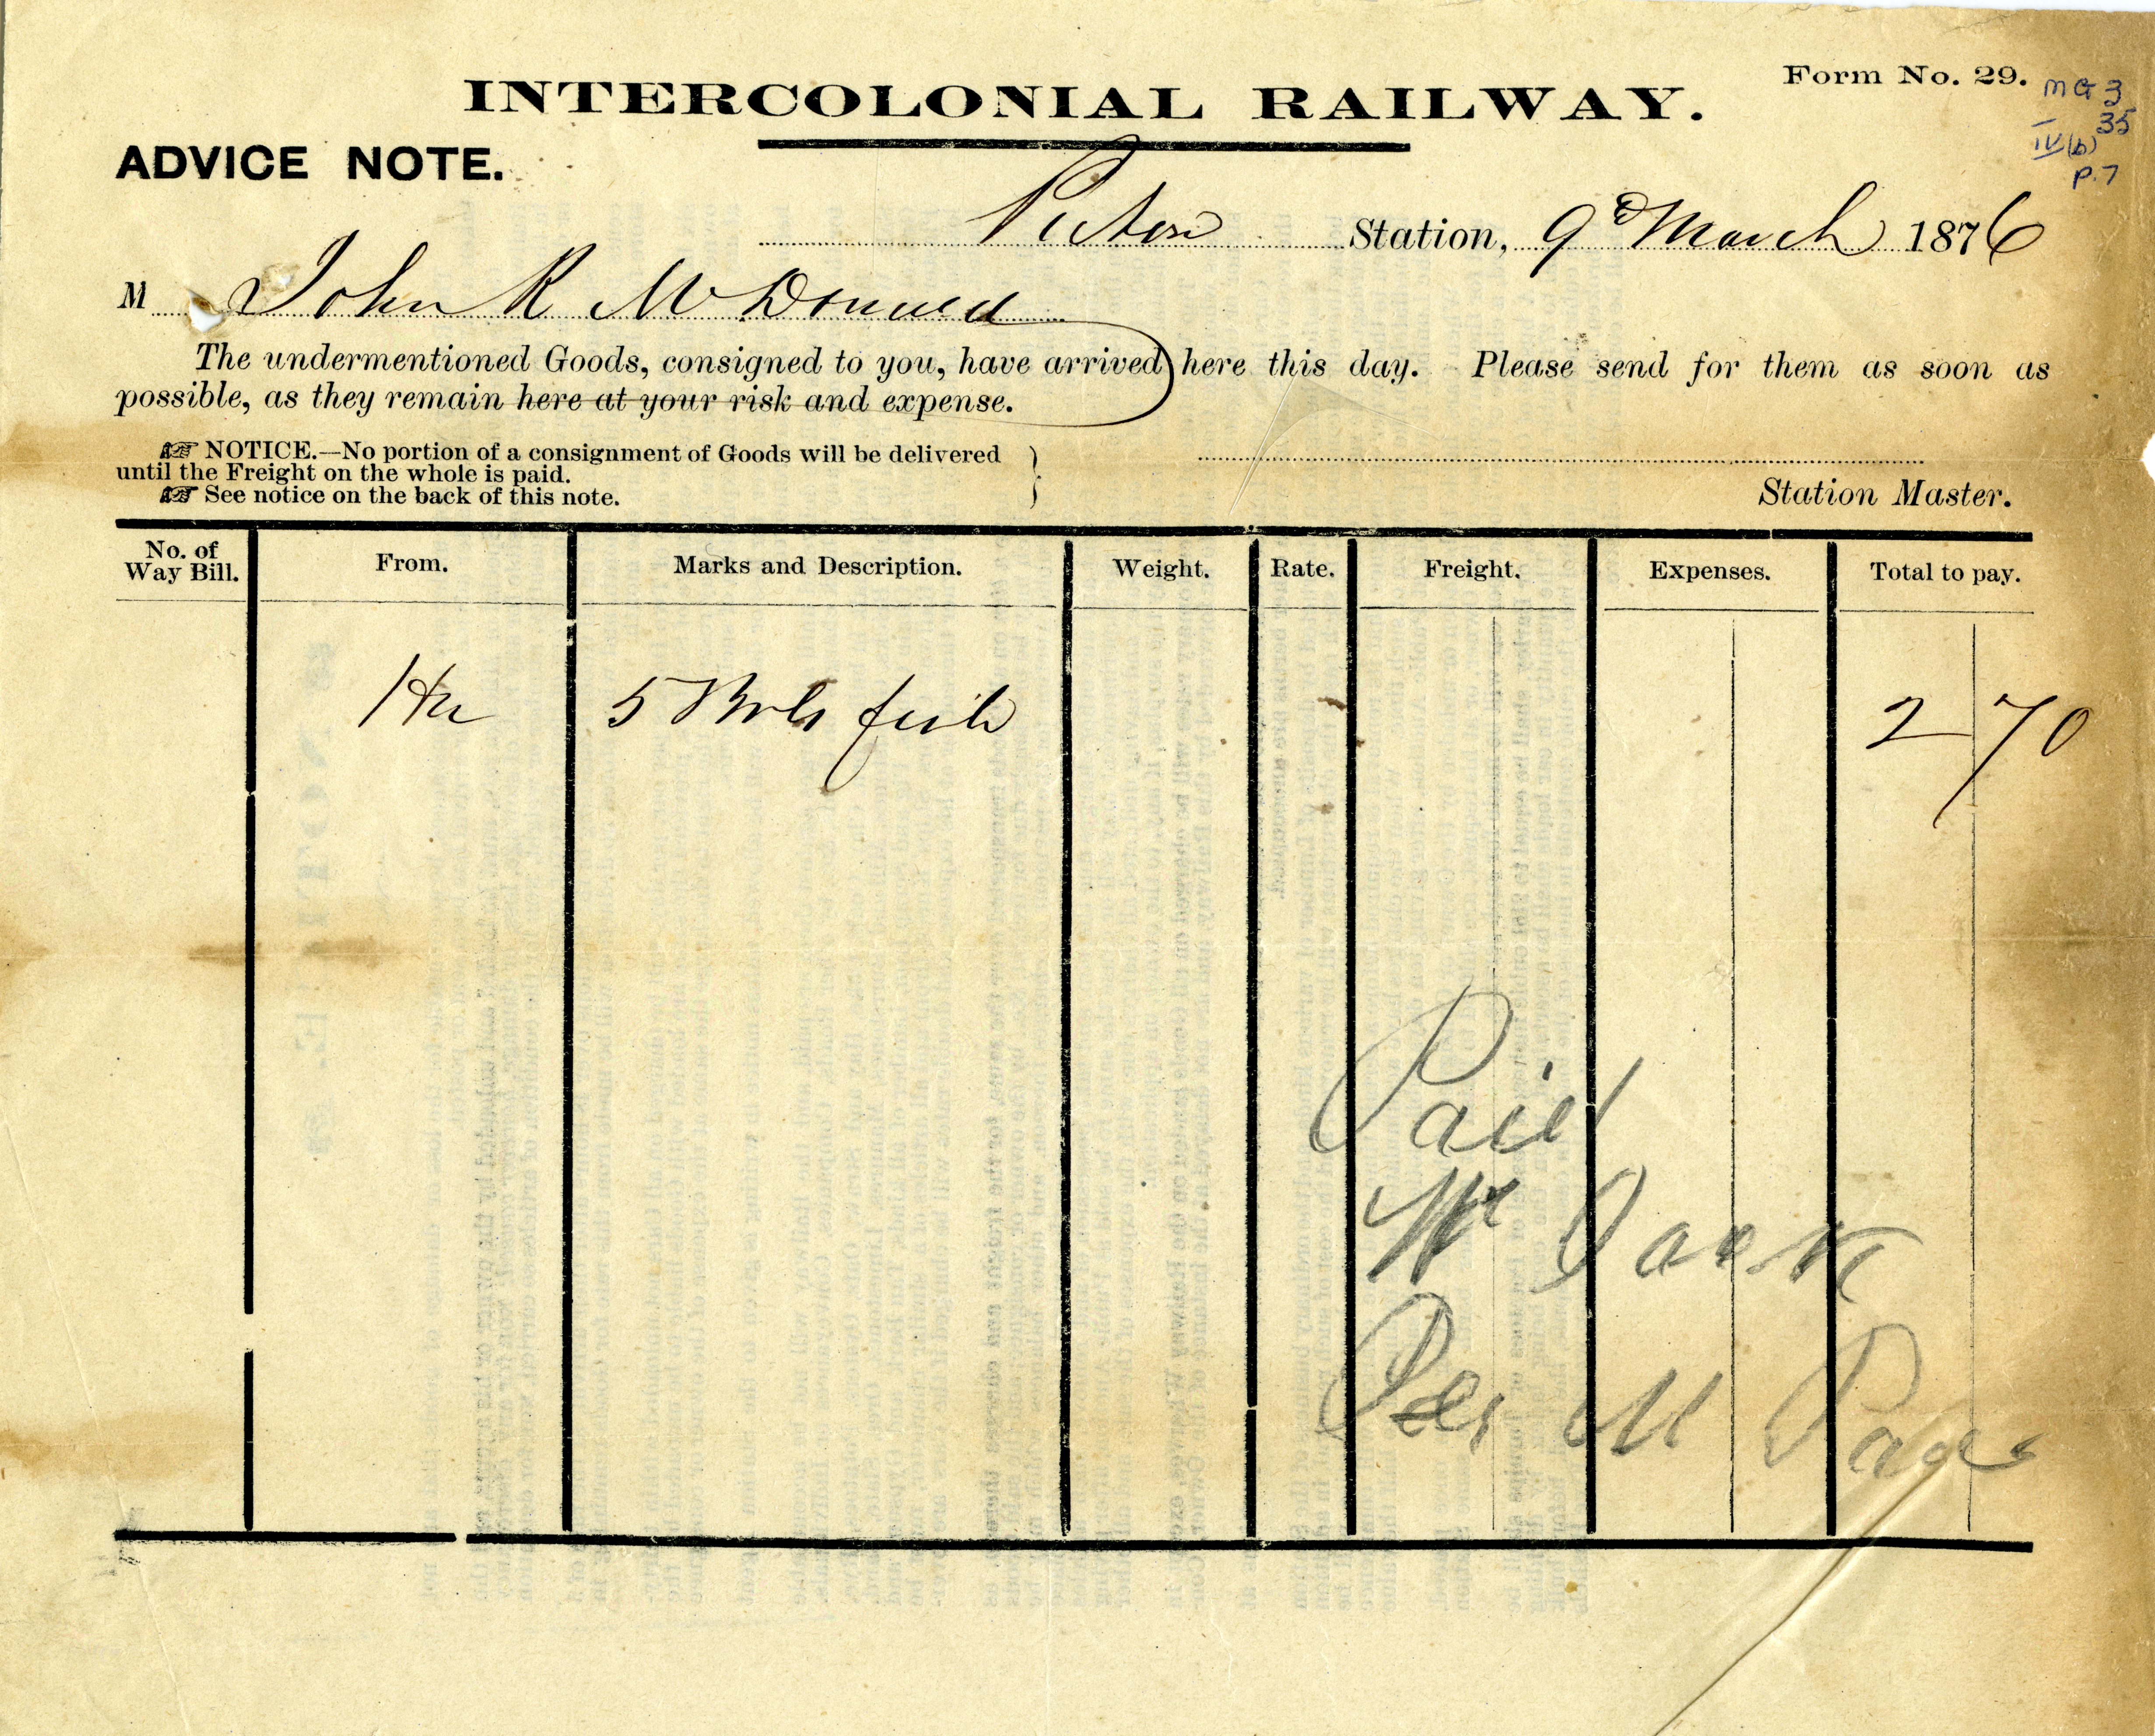 Form No. 29.
MG 3
35
IV(b)
p.7
INTERCOLONIAL RAILWAY.
ADVICE NOTE.
Pictou Station, 9th March 1876
M John R McDonald
The undermentioned Goods, consigned to you, have arrived here this day. Please send for them as soon as
possible, as they remain here at your risk and expense.
☞ NOTICE.—No portion of a consignment of Goods will be delivered
until the Freight on the whole is paid.
☞ See notice on the back of this note.
Station Master.
No. of Way Bill. From. Marks and Description. Weight. Rate. Freight. Expenses. Total to pay.
Hx 5 Brls fish 2 70
Paid
Wm Jack
Per M